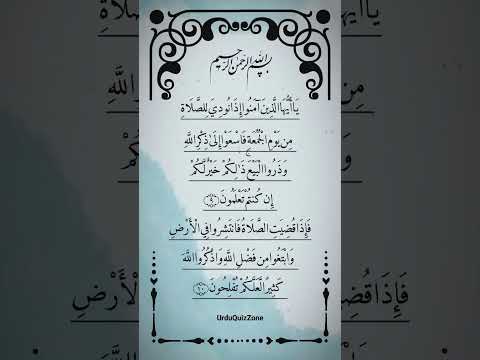 بسم الله الرحمن الرحيم
يَا أَيُّهَا الَّذِينَ آمَنُوا إِذَا نُودِيَ لِلصَّلَاةِ
مِن يَوْمِ الْجُمُعَةِ فَاسْعَوْا إِلَىٰ ذِكْرِ اللَّهِ
وَذَرُوا الْبَيْعَ ذَٰلِكُمْ خَيْرٌ لَّكُمْ
إِن كُنتُمْ تَعْلَمُونَ ﴿٩﴾
فَإِذَا قُضِيَتِ الصَّلَاةُ فَانتَشِرُوا فِي الْأَرْضِ
وَابْتَغُوا مِن فَضْلِ اللَّهِ وَاذْكُرُوا اللَّهَ
كَثِيرًا لَّعَلَّكُمْ تُفْلِحُونَ ﴿١٠﴾
UrduQuizZone